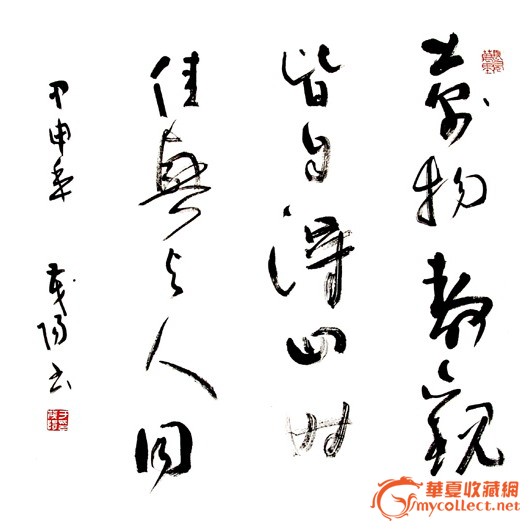 萬物静觀
皆自得四时
佳興与人同
甲申年 茂陽书
華夏收藏網
mycollect.net